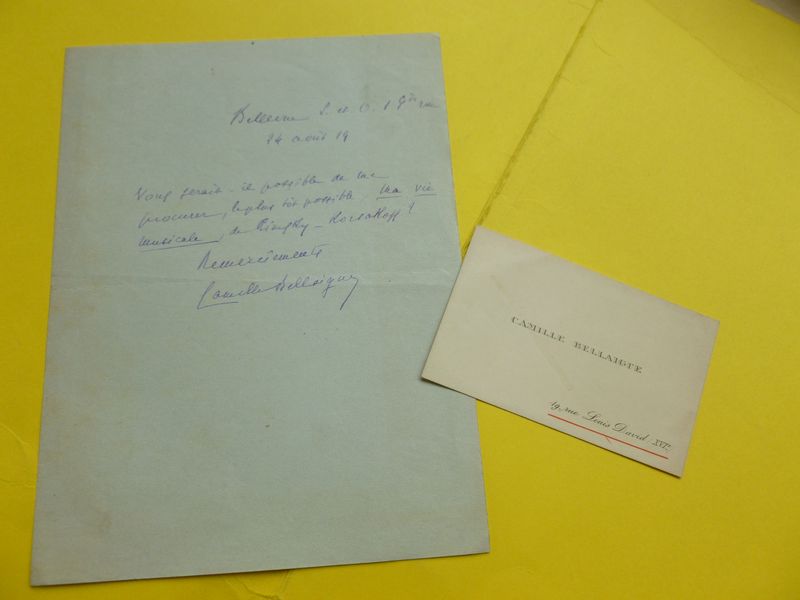 Bellevue S. et O. 1 Gde rue
24 août 19
Vous serait-il possible de me
procurer, le plus tôt possible, Ma vie
musicale, de Rimsky-Korsakoff ?
Remerciements
Camille Bellaigue
CAMILLE BELLAIGUE
19, rue Louis David. XVIe